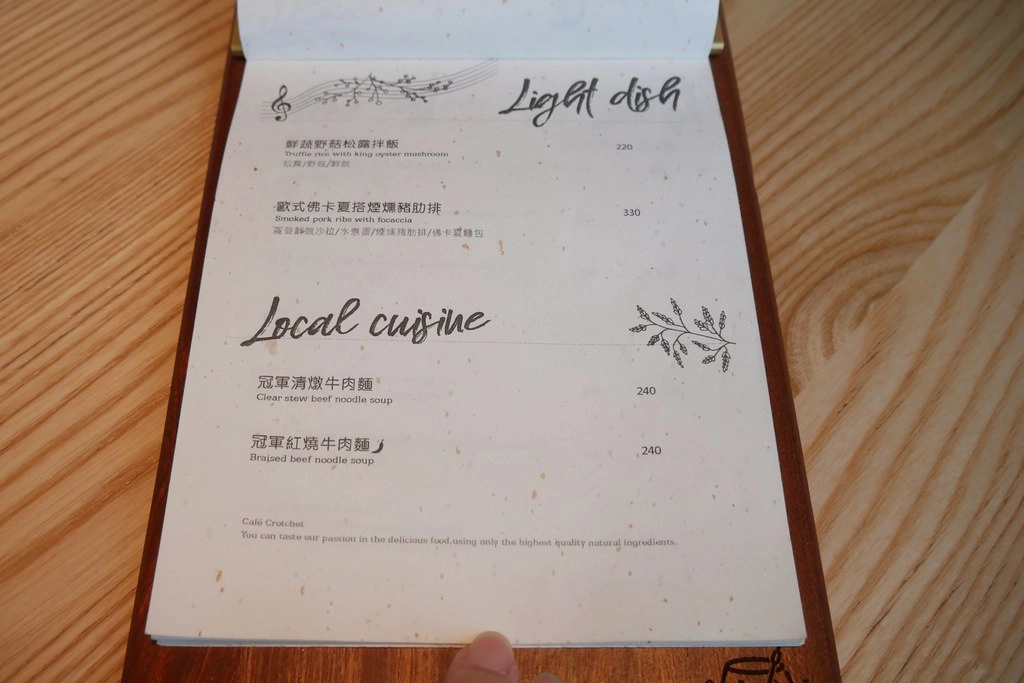 Light dish
鮮蔬野菇松露拌飯 220
Truffle rice with king oyster mushroom
松露/野菇/鮮蔬
歐式佛卡夏搭煙燻豬肋排 330
Smoked pork ribs with focaccia
蘿蔓鮮蔬沙拉/水煮蛋/煙燻豬肋排/佛卡夏麵包
Local cuisine
冠軍清燉牛肉麵 240
Clear stew beef noodle soup
冠軍紅燒牛肉麵 240
Braised beef noodle soup
Café Crotchet
You can taste our passion in the delicious food,using only the highest quality natural ingredients.